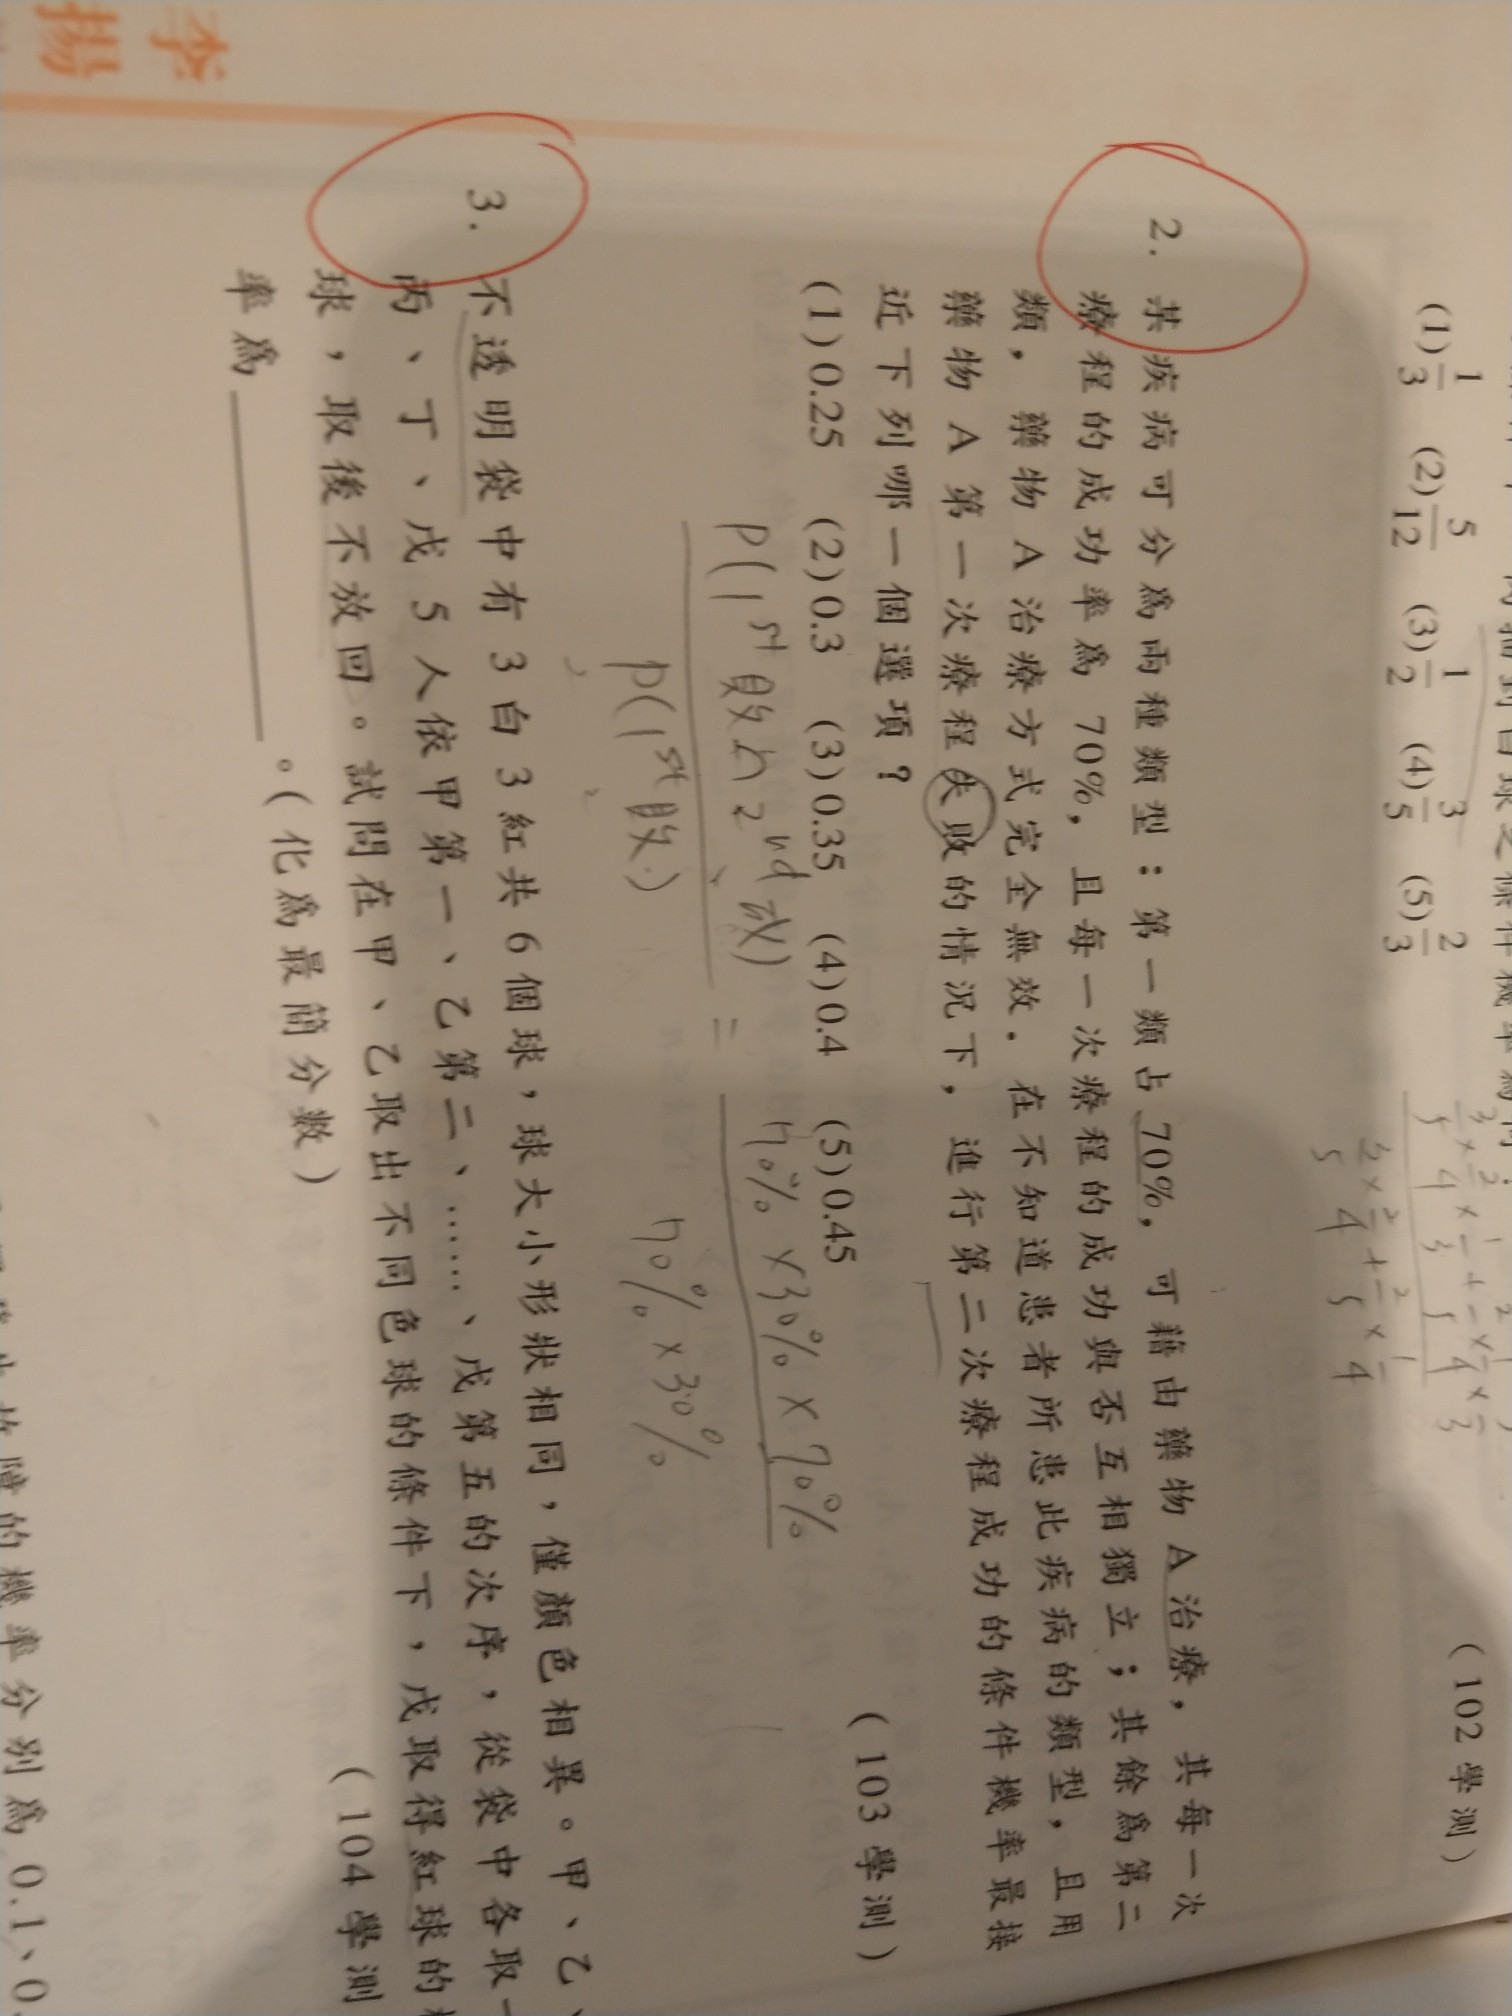 李
揚
到白球之條件機率為何
(1) 1/3 (2) 5/12 (3) 1/2 (4) 3/5 (5) 2/3
(102學測)
2. 某疾病可分為兩種類型：第一類占70%，可藉由藥物A治療，其每一次
療程的成功率為70%，且每一次療程的成功與否互相獨立；其餘為第二
類，藥物A治療方式完全無效。在不知道患者所患此疾病的類型，且用
藥物A第一次療程失敗的情況下，進行第二次療程成功的條件機率最接
近下列哪一個選項？
(103學測)
(1)0.25 (2)0.3 (3)0.35 (4)0.4 (5)0.45
P(1st敗∩2nd成) = 70% × 30% × 70%
P(1st敗) 70% × 30%
3. 不透明袋中有3白3紅共6個球，球大小形狀相同，僅顏色相異。甲、乙、
丙、丁、戊5人依甲第一、乙第二、……、戊第五的次序，從袋中各取一
球，取後不放回。試問在甲、乙取出不同色球的條件下，戊取得紅球的
率為 。(化為最簡分數)
(104學測
的機率分別為0.1、0.